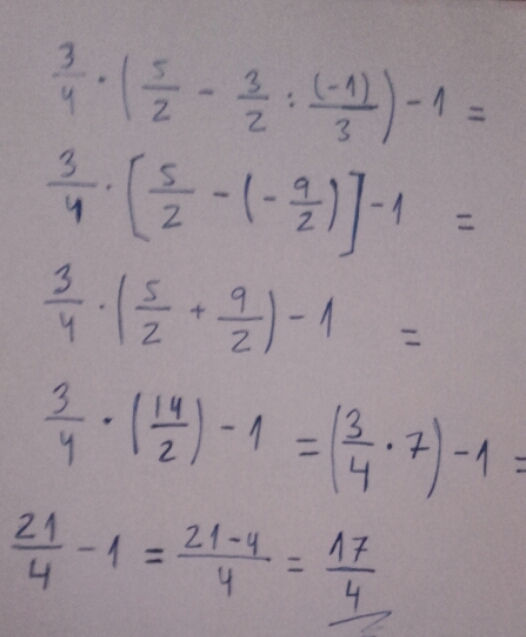 3/4 · (5/2 - 3/2 : (-1)/3) - 1 =
3/4 · [5/2 - (-9/2)] - 1 =
3/4 · (5/2 + 9/2) - 1 =
3/4 · (14/2) - 1 = (3/4 · 7) - 1 =
21/4 - 1 = 21-4/4 = 17/4